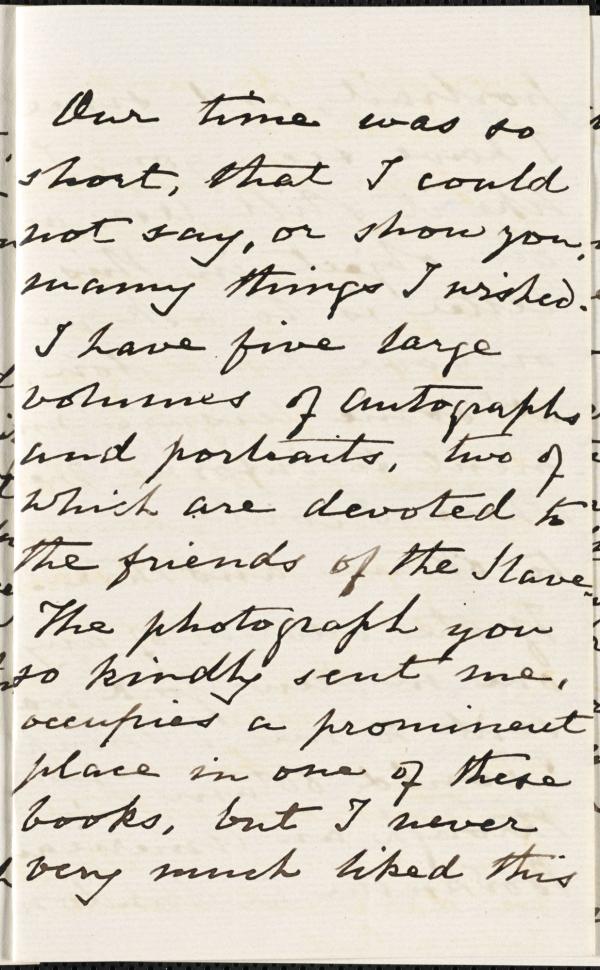 Our time was so
short, that I could
not say, or show you,
many things I wished.
I have five large
volumes of autographs
and portraits, two of
which are devoted to
the friends of the Slave.
The photograph you
so kindly sent me,
occupies a prominent
place in one of these
books, but I never
very much liked this